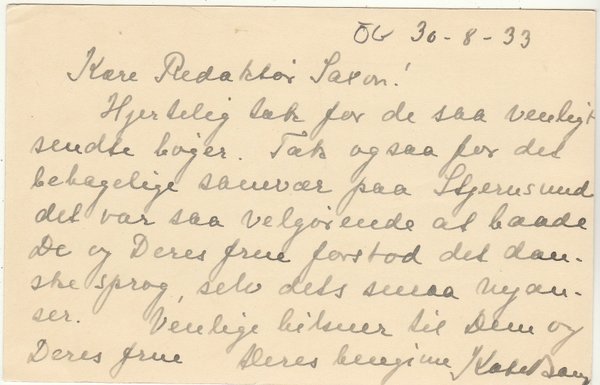 OG 30-8-33
Kære Redaktør Saxon!
Hjertelig tak for de saa venligt
sendte bøger. Tak ogsaa for det
behagelige samvær paa Stjernsund
det var saa velgørende at baade
De og Deres frue forstod det dan-
ske sprog, selv dets smaa nyan-
ser. Venlige hilsner til Dem og
Deres frue Deres hengivne